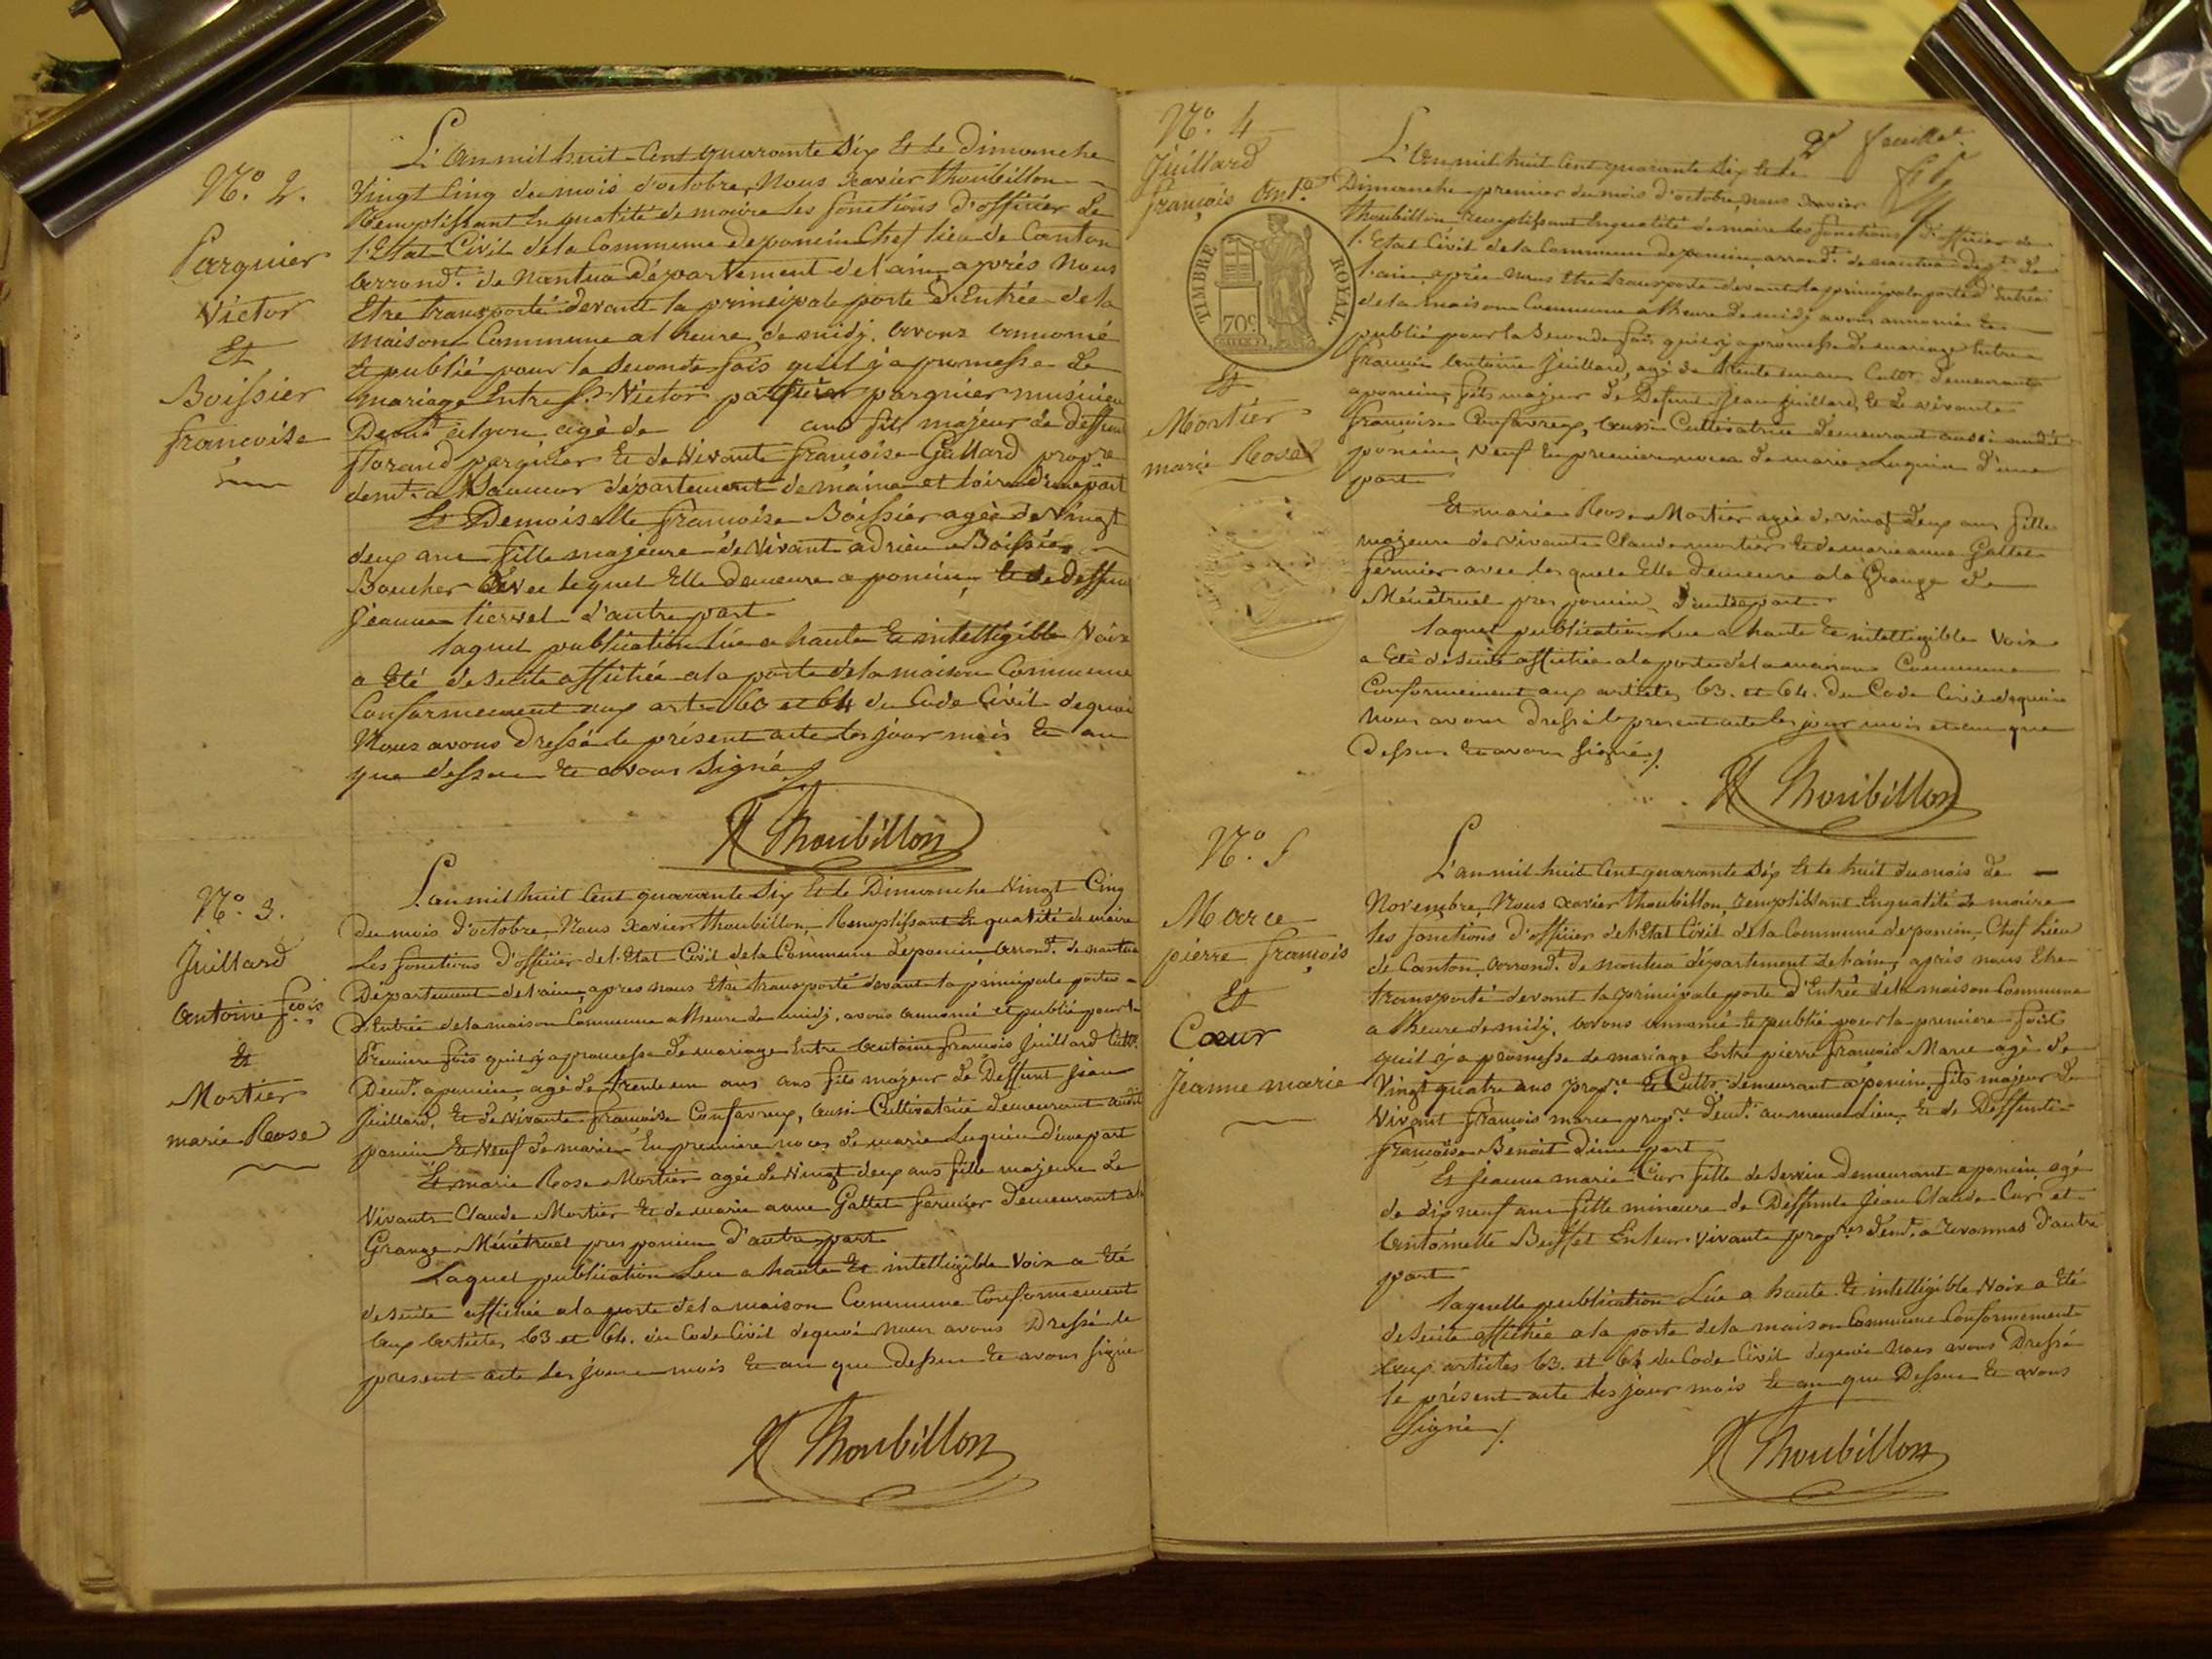 N.° 2.
Parquier
Victor
Et
Boissier
francoise
L'an mil huit Cent quarante Six Et le Dimanche
Vingt Cinq du mois d'octobre, Nous Xavier Thoubillon
Remplissant En qualité de maire les fonctions d'officier de
l'Etat Civil de la Commune de poncin Chef lieu de Canton
arrond.t de Nantua Département de l'ain, après Nous
Etre transporté devant la principale porte d'Entrée de la
maison Commune a l heure de midj. avons annoncé
et publié pour la Seconde fois qu'il y a promesse de
mariage Entre S.r Victor parquier musicien
Dem.t a lyon agé de ans fils majeur de deffunt
florand parquier Et de Vivante françoise Gallard propre
demt. a Saumur département de maine et loire d'une part
Et Demoiselle francoise Boissier agée de Vingt
deux ans fille majeure de Vivant adrien Boissier
Boucher avec lequel Elle demeure a poncin, Et de deffunte
Jeanne tiersel d'autre part
laquel publication lue a haute Et intelligible Voix
a Eté de suite affichée a la porte de la maison Commune
Conformement aux art. 63 et 64 du Code Civil dequoi
Nous avons dressé le présent acte les jour mois Et an
que dessus Et avons Signé
X Thoubillon
N.° 3.
Juillard
antoine fcois
Et
Mortier
marie Rose
L'an mil huit Cent quarante Six Et le Dimanche Vingt Cinq
du mois d'octobre, Nous Xavier Thoubillon, Remplissant En qualité de maire
Les fonctions d'officier de l'Etat Civil de la Commune de poncin arrond.t de nantua
Département de l'ain, apres nous Etre transporté devant la principale porte
D'Entrée de la maison Commune a l heure de midj, avons annoncé et publié pour la
Premiere fois qu'il y a promesse de mariage Entre antoine françois Juillard Cultr.
Dem.t a poncin, agé de trente un ans ans fils majeur de Deffunt Jean
Juillard, Et de Vivante françoise Confavreux, aussi Cultivatrice demeurant audit
poncin Et Veuf de marié En premiere noces de marie Luquin d'une part
Et marie Rose Mortier agée de Vingt deux ans fille majeure de
Vivants Claude Mortier Et de marie anne Gallet fermier demeurant a la
Grange Ménétruel pres poncin D'autre part
Laquel publication Lue a haute Et intelligible Voix a Eté
de suite affichée a la porte de la maison Commune Conformement
aux articles 63 et 64. du Code Civil dequoi nous avons Dressé le
present acte les jour mois Et an que Dessus Et avons signé
X Thoubillon
2e feuillet.
N.° 4
Juillard
françois Ant.e
TIMBRE ROYAL.
70c
Et
Mortier
marie Rose
L'an mil huit Cent quarante Six Et le
Dimanche premier du mois d'octobre, nous Xavier
Thoubillon Remplissant En qualité de maire les fonctions d'officier de
l'Etat Civil de la Commune de poncin, arrond.t de nantua dep.t de
l'ain, après nous Etre transporté devant la principale porte d'Entrée
de la maison Commune a l heure de midj avons annoncé Et
publié pour la Seconde fois, qu'il y a promesse de mariage Entre
françois antoine Juillard, agé de trente un ans Cultr. demeurant
a poncin, fils majeur de Defunt Jean Juillard, Et de Vivante
françoise Confavreux, aussi Cultivatrice demeurant aussi audit
poncin, Veuf En premiere noces de marie Luquin d'une
part
Et marie Rose Mortier agée de Vingt deux ans fille
majeure de Vivants Claude mortier Et de marie anne Gallet
fermier avec lesquels Elle Demeure a la Grange de
Ménétruel pres poncin, D'autre part
laquel publication Lue a haute Et intelligible Voix
a Eté de suite affichée a la porte de la maison Commune
Conformement aux articles 63. et 64. du Code Civil dequoi
Nous avons Dressé le present acte les jour mois et an que
Dessus Et avons Signé
X Thoubillon
N.° 5
Marce
pierre françois
Et
Cœur
Jeanne marie
L'an mil huit Cent quarante Six Et le huit du mois de
Novembre, Nous Xavier Thoubillon, remplissant En qualité de maire
les fonctions d'officier de l'Etat Civil de la Commune de poncin, Chef Lieu
de Canton, arrond.t de nantua département de l'ain, après nous Etre
transporté devant la principale porte d'Entrée de la maison Commune
a l heure de midj. avons annoncé Et publié pour la premiere fois
qu'il y a promesse de mariage Entre pierre françois Marce agé de
Vingt quatre ans prop.re Et Cultr. demeurant a poncin, fils majeur de
Vivant François marce prop.re dem.t au meme Lieu, Et de Deffunte
françoise Benoit d'une part
Et Jeanne marie Cur fille de Service Demeurant a poncin agé
de dix neuf ans fille mineure de Deffunts Jean Claude Cur et
antoinette Buffet En leur vivants prop.res dem.t a Revonnas d'autre
part
laquelle publication Lue a haute Et intelligible Voix a Eté
de suite affichée a la porte de la maison Commune Conformement
aux articles 63. et 64 du Code Civil dequoi Nous avons Dressé
le présent acte les jour mois Et an que Dessus Et avons
Signé
X Thoubillon